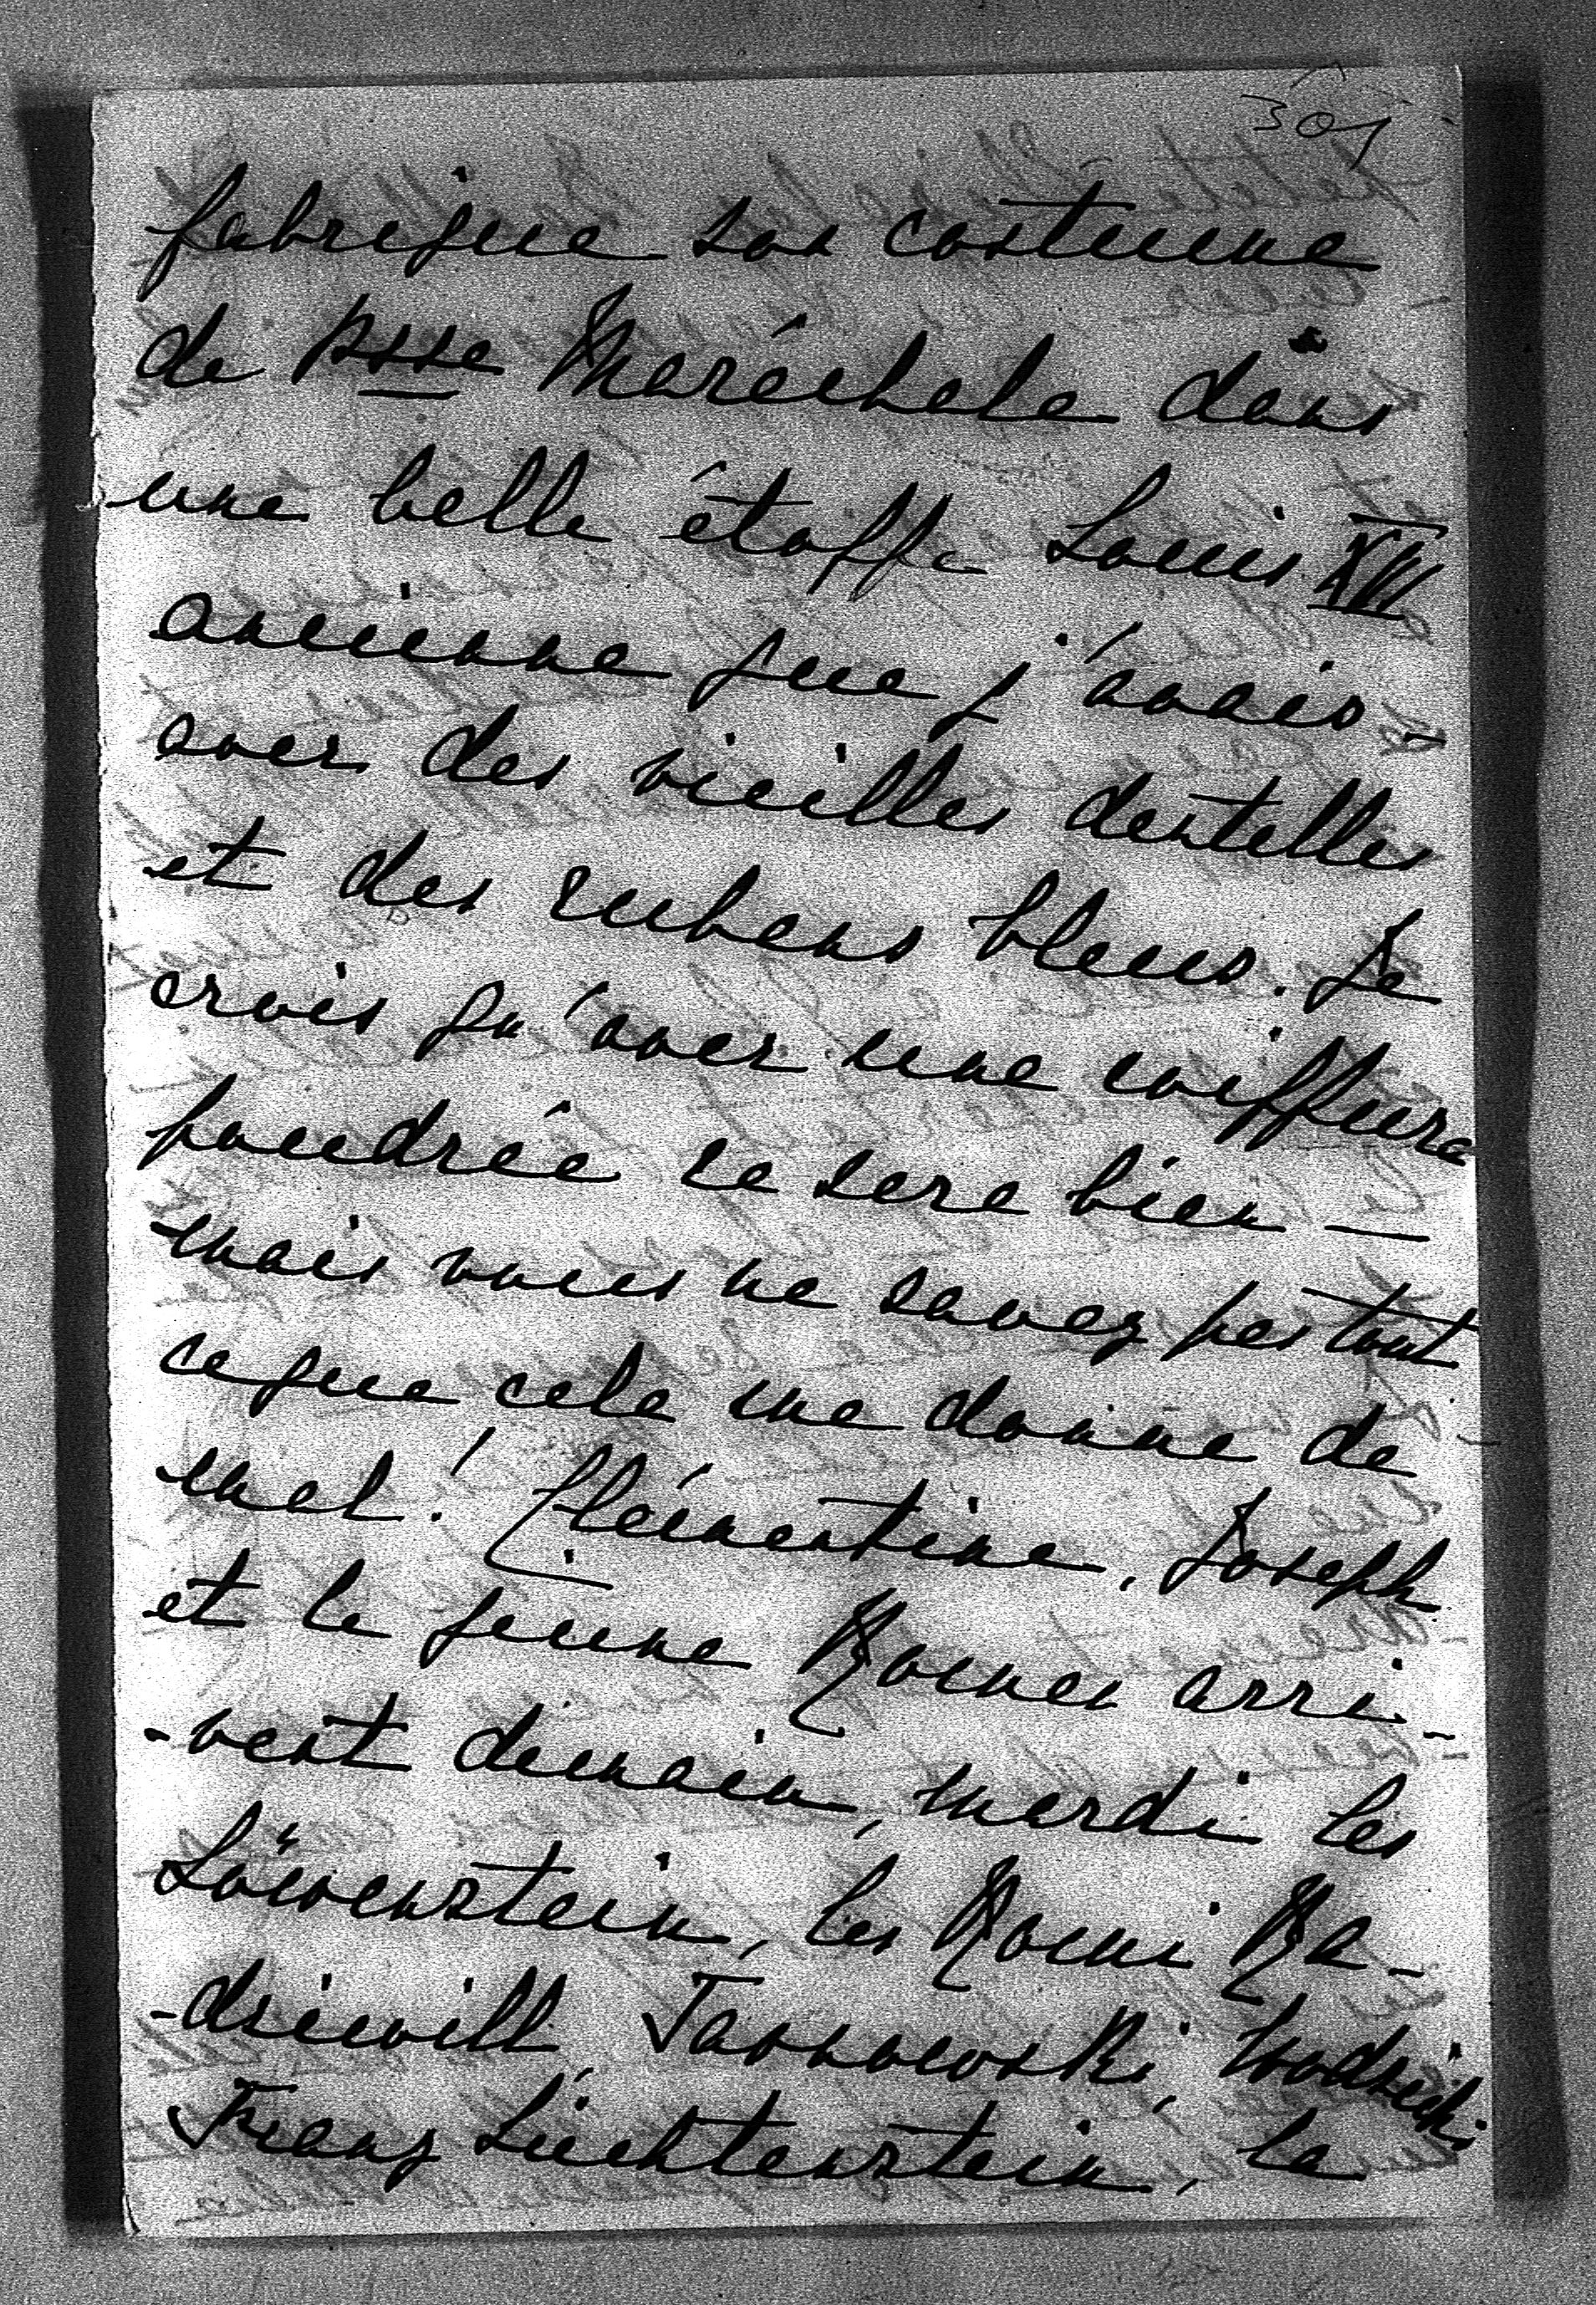 307
fabrique son costume
de Psse Maréchale dans
une belle étoffe Louis XVI
ancienne que j'avais
avec des vieilles dentelles
et des rubans bleus. Je
crois qu'avec une coiffure
poudrée ce sera bien —
mais vous ne savez pas tout
ce que cela me donne de
mal! Clémentine, Joseph
et le jeune Roman arri-
-vent demain, mardi les
Löwenstein, les Roma Ra-
-dziwill, Tarnowski, Wodzicki
Franz Liechtenstein, la